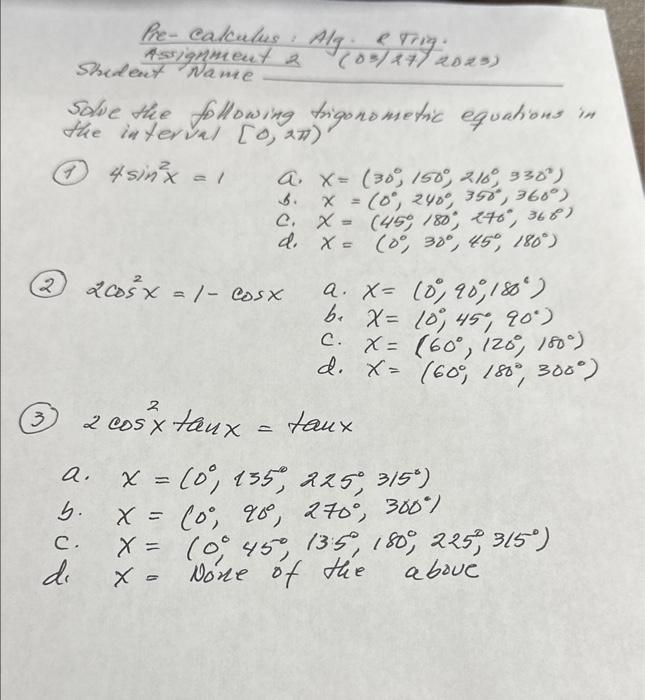 Pre-calculus: Alg. & Trig.
Assignment 2 (03/27/2023)
Student Name
Solve the following trigonometric equations in
the interval [0, 2π)
① 4sin²x = 1 a. x = (30°, 150°, 210°, 330°)
b. x = (0°, 240°, 350°, 360°)
c. x = (45°, 180°, 270°, 360°)
d. x = (0°, 30°, 45°, 180°)
② 2cos²x = 1 - cosx a. x = (0°, 90°, 180°)
b. x = (0°, 45°, 90°)
c. x = (60°, 120°, 180°)
d. x = (60°, 180°, 300°)
③ 2 cos²x tanx = tanx
a. x = (0°, 135°, 225°, 315°)
b. x = (0°, 90°, 270°, 300°)
c. x = (0°, 45°, 135°, 180°, 225°, 315°)
d. x = None of the above